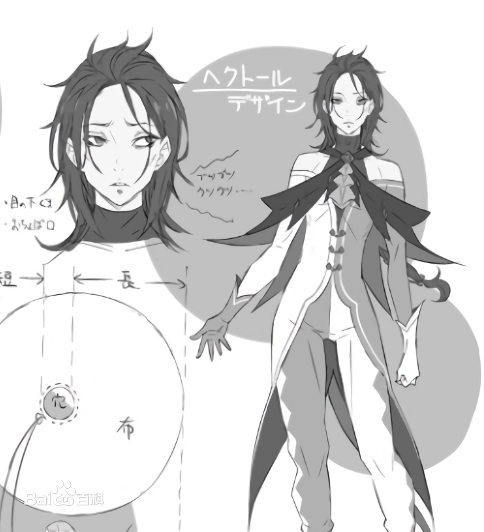 ヘクトール
デザイン
ブツブツ
ウツウツ……
・目の下くま
・おちょぼ口
短
長
穴
布
Baidu百科